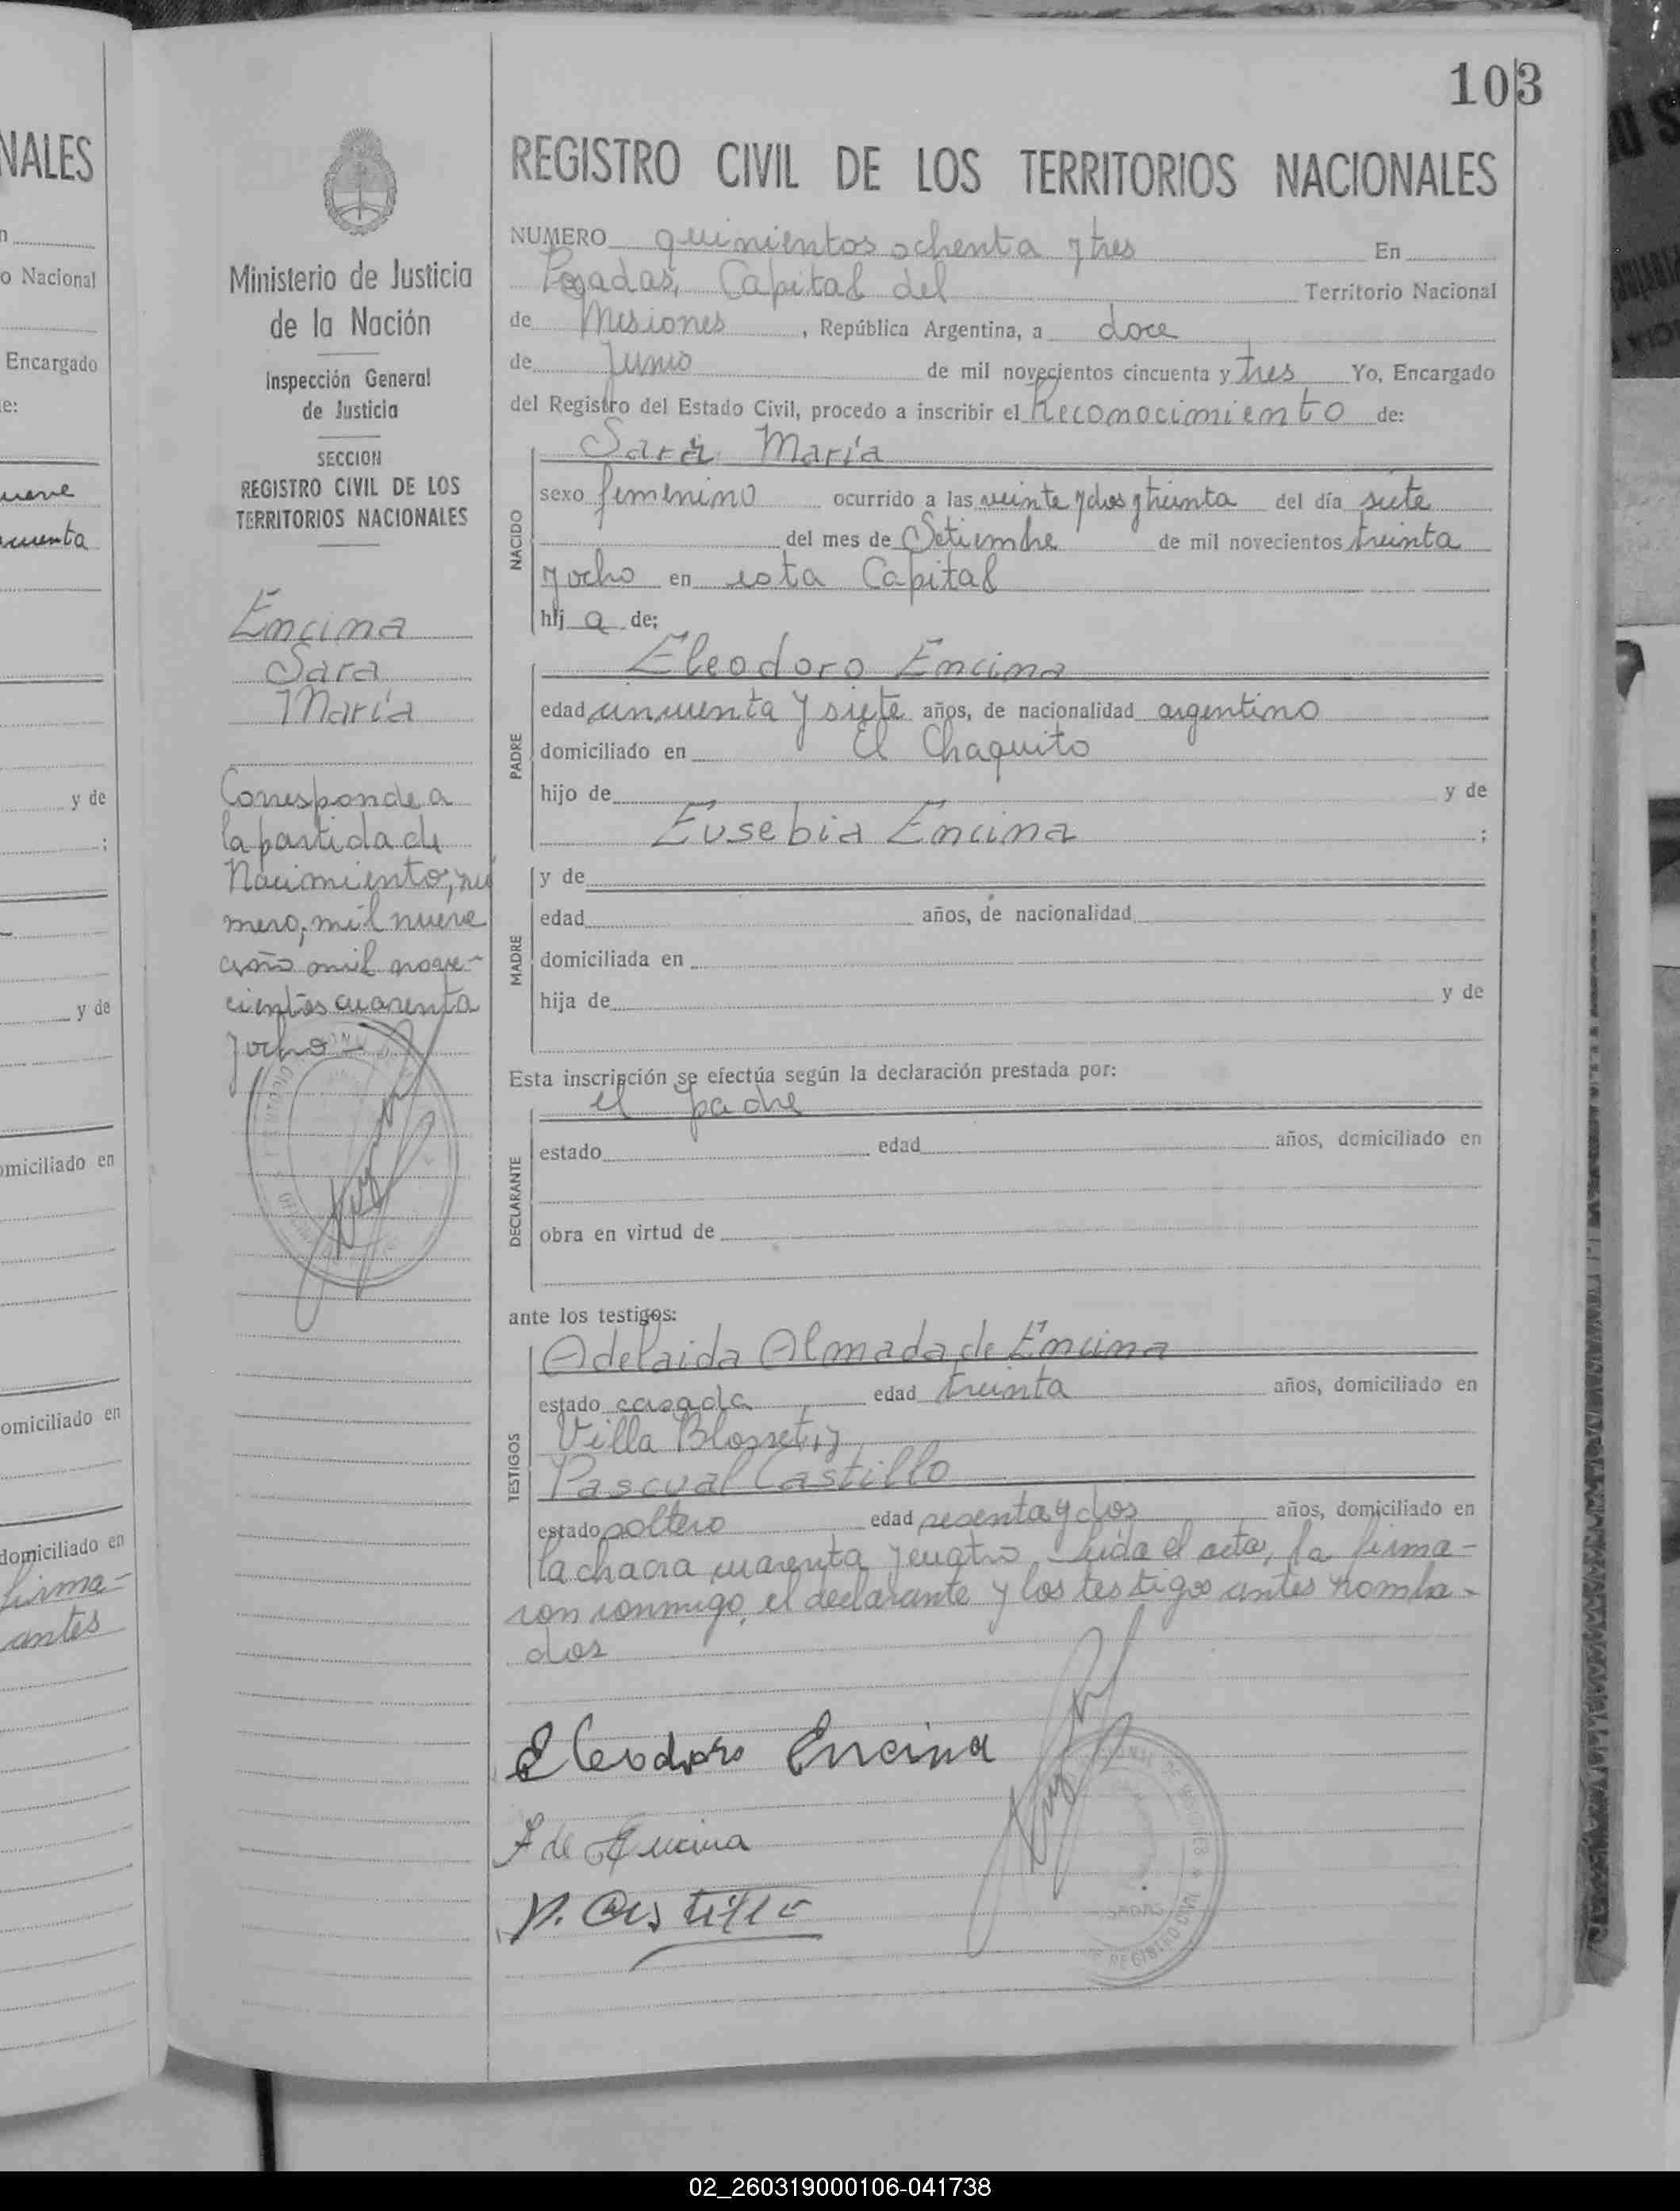 103
NALES
n
o Nacional
Encargado
e:
nueve
cuenta
y de
;
y de
omiciliado en
omiciliado en
domiciliado en
firma-
antes
Ministerio de Justicia
de la Nación
Inspección General
de Justicia
SECCION
REGISTRO CIVIL DE LOS
TERRITORIOS NACIONALES
Encina
Sara
María
Corresponde a
la partida de
Nacimiento, nú
mero, mil nueve
año mil nove-
cientos cuarenta
y ocho -
REGISTRO CIVIL DE LOS TERRITORIOS NACIONALES
NUMERO quinientos ochenta y tres En
Posadas, Capital del Territorio Nacional
de Misiones, República Argentina, a doce
de Junio de mil novecientos cincuenta y tres Yo, Encargado
del Registro del Estado Civil, procedo a inscribir el Reconocimiento de:
Sara María
NACIDO
sexo femenino ocurrido a las veinte y dos y treinta del día siete
del mes de Setiembre de mil novecientos treinta
y ocho en esta Capital
hij a de:
Eleodoro Encina
PADRE
edad cincuenta y siete años, de nacionalidad argentino
domiciliado en El Chaquito
hijo de y de
Eusebia Encina ;
y de
MADRE
edad años, de nacionalidad
domiciliada en
hija de y de
Esta inscripción se efectúa según la declaración prestada por:
el padre
DECLARANTE
estado edad años, domiciliado en
obra en virtud de
ante los testigos:
Adelaida Almada de Encina
TESTIGOS
estado casada edad treinta años, domiciliado en
Villa Blosset, y
Pascual Castillo
estado soltero edad sesenta y dos años, domiciliado en
la chacra cuarenta y cuatro Leída el acta, la firma-
ron conmigo, el declarante y los testigos antes nombra-
dos
Eleodoro Encina
de Encina
P. Castillo
REGISTRO CIVIL
02_260319000106-041738